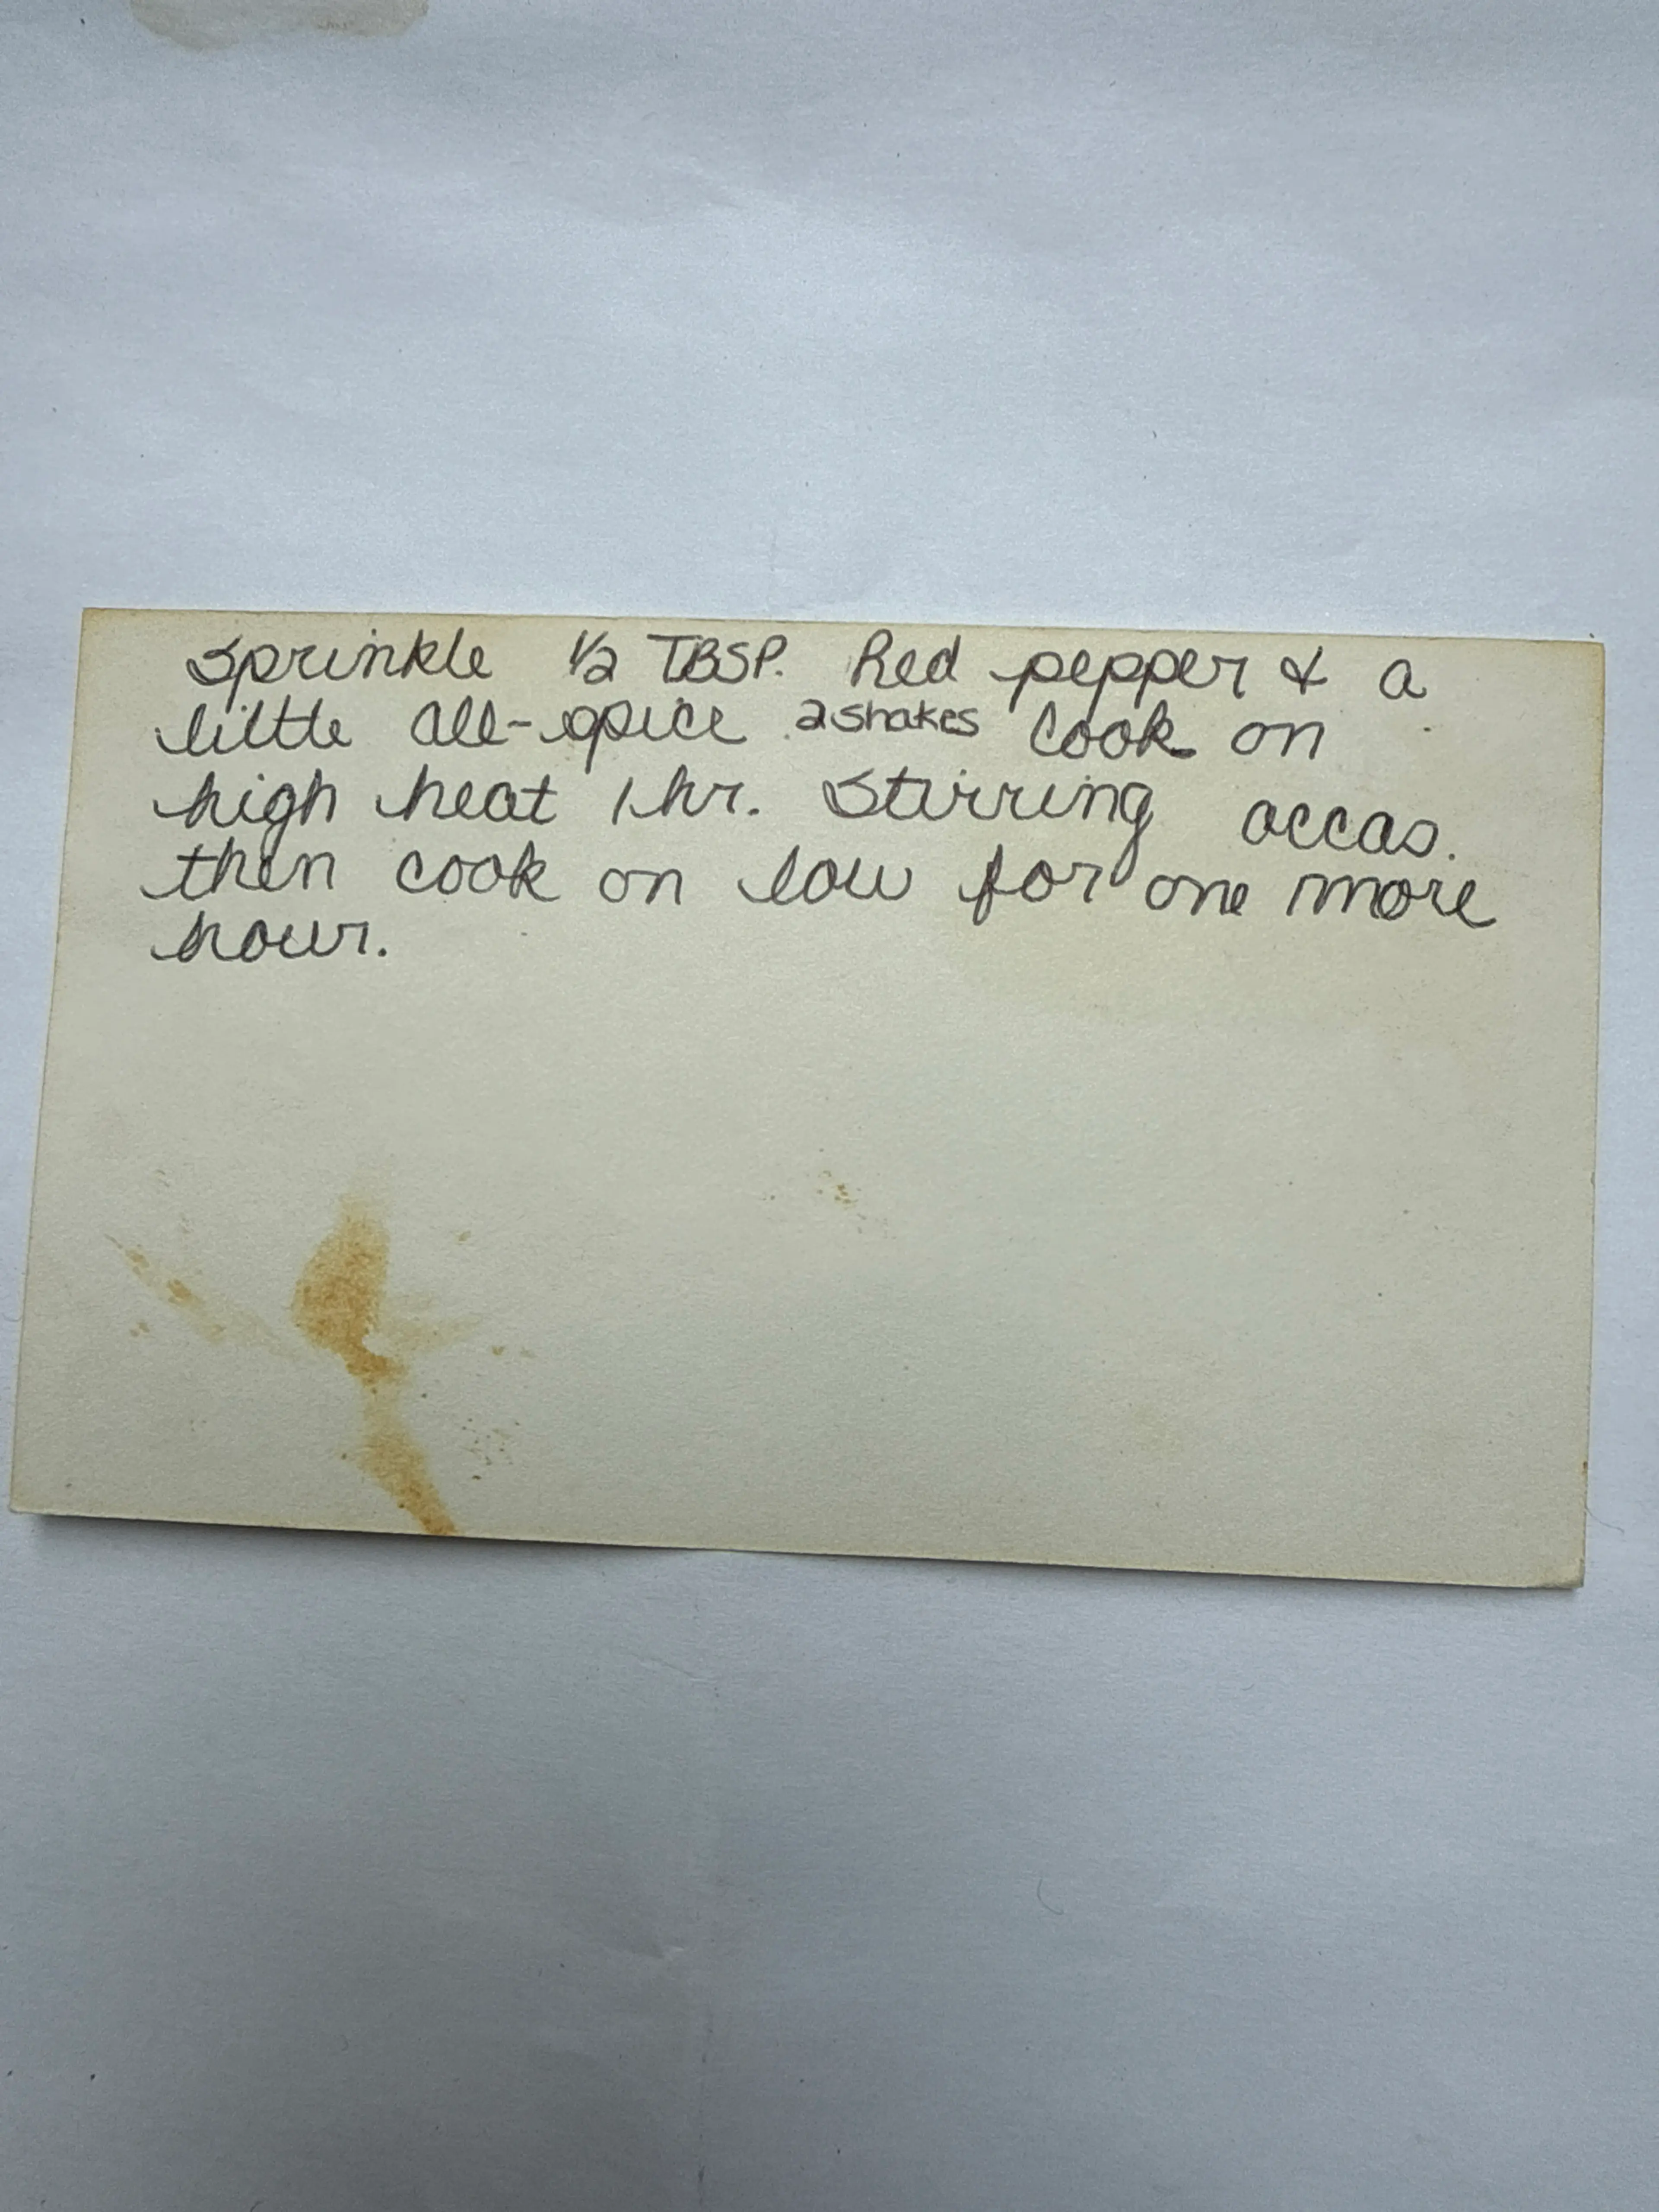 Sprinkle 1/2 TBSP. Red pepper & a
little all-spice 2 shakes Cook on
high heat 1 hr. Stirring occas.
then cook on low for one more
hour.